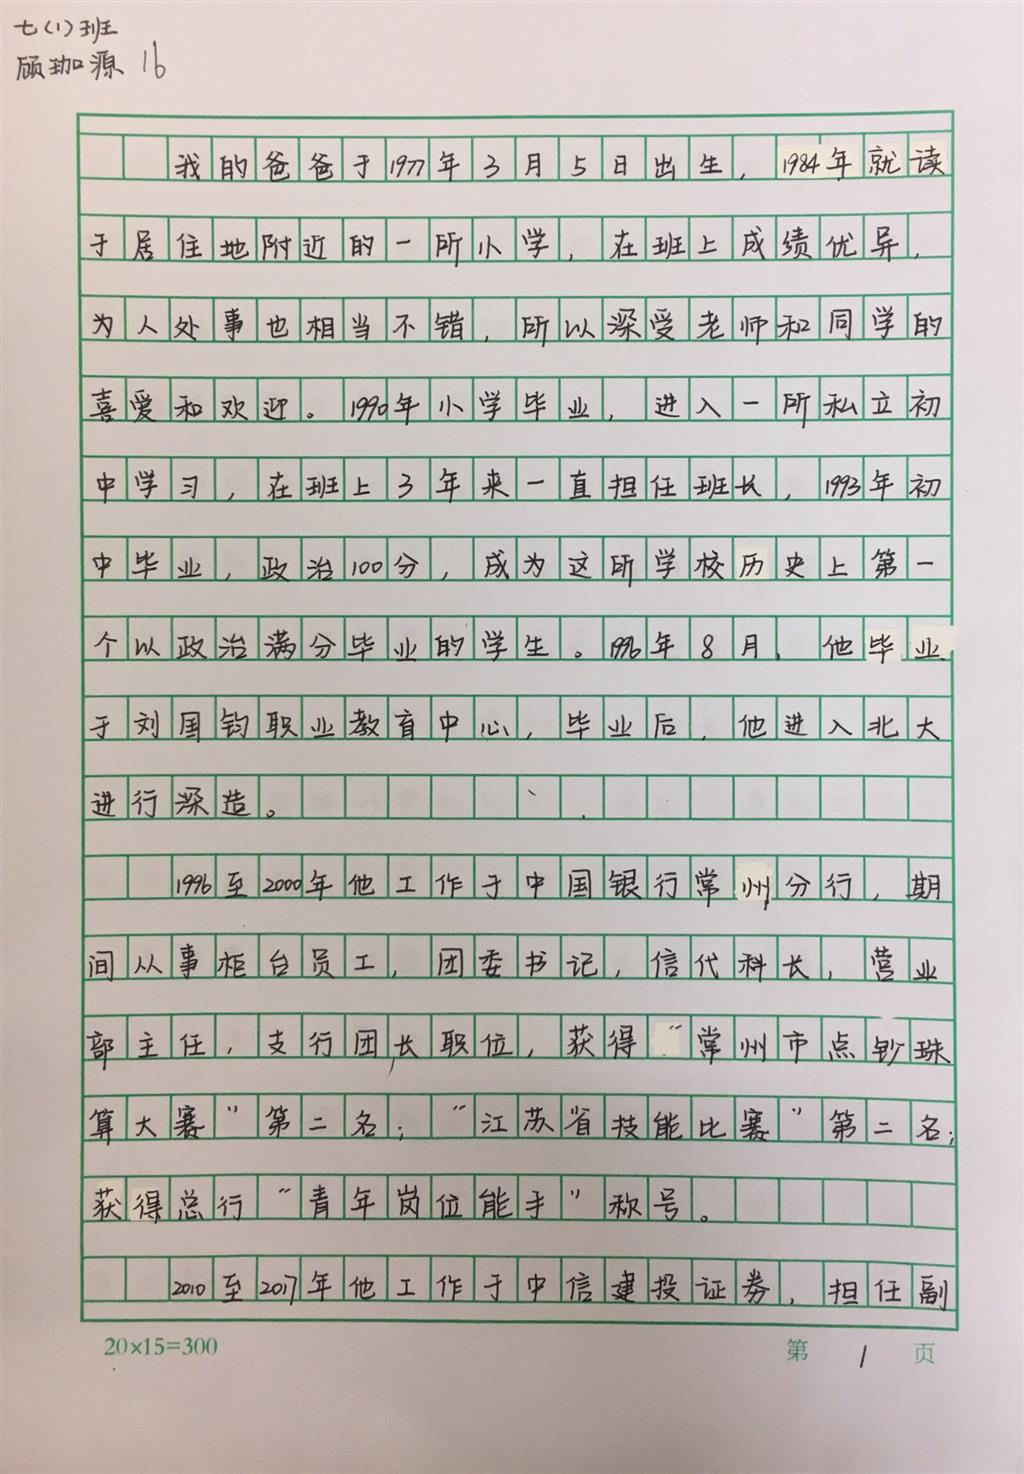 七(1)班
顾珈源 16
我的爸爸于1977年3月5日出生，1984年就读
于居住地附近的一所小学，在班上成绩优异，
为人处事也相当不错，所以深受老师和同学的
喜爱和欢迎。1990年小学毕业，进入一所私立初
中学习，在班上3年来一直担任班长，1993年初
中毕业，政治100分，成为这所学校历史上第一
个以政治满分毕业的学生。1996年8月，他毕业
于刘国钧职业教育中心，毕业后，他进入北大
进行深造。
1996至2000年他工作于中国银行常州分行，期
间从事柜台员工，团委书记，信代科长，营业
部主任，支行团长职位，获得“常州市点钞珠
算大赛”第二名；“江苏省技能比赛”第二名；
获得总行“青年岗位能手”称号。
2010至2017年他工作于中信建投证券，担任副
20×15=300
第 1 页